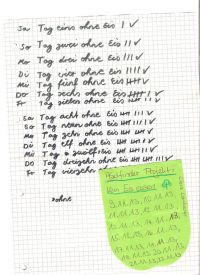 Sa Tag eins ohne Eis I ✓
So Tag zwei ohne Eis II ✓
Mo Tag drei ohne Eis III ✓
Di Tag vier ohne Eis IIII ✓
Mi Tag fünf ohne Eis ✓
Do Tag sechs ohne Eis I ✓
Fr Tag sieben ohne Eis II ✓
Sa Tag acht ohne Eis III ✓
So Tag neun ohne Eis IIII ✓
Mo Tag zehn ohne Eis ✓
Di Tag elf ohne Eis I ✓
Mi Tag zwölf ohne Eis II ✓
Do Tag dreizehn ohne Eis III ✓
Fr Tag vierzehn
Pfadfinder Projekt:
Kein Eis essen!
9.11.13, 10.11.13,
11.11.13, 12.11.13,
13.11.13, 14.11.13,
15.11.13, 16.11.13,
17.11.13, 18.11.13,
19.11.13, 20.11.13,
21.11.13, 22.11.13